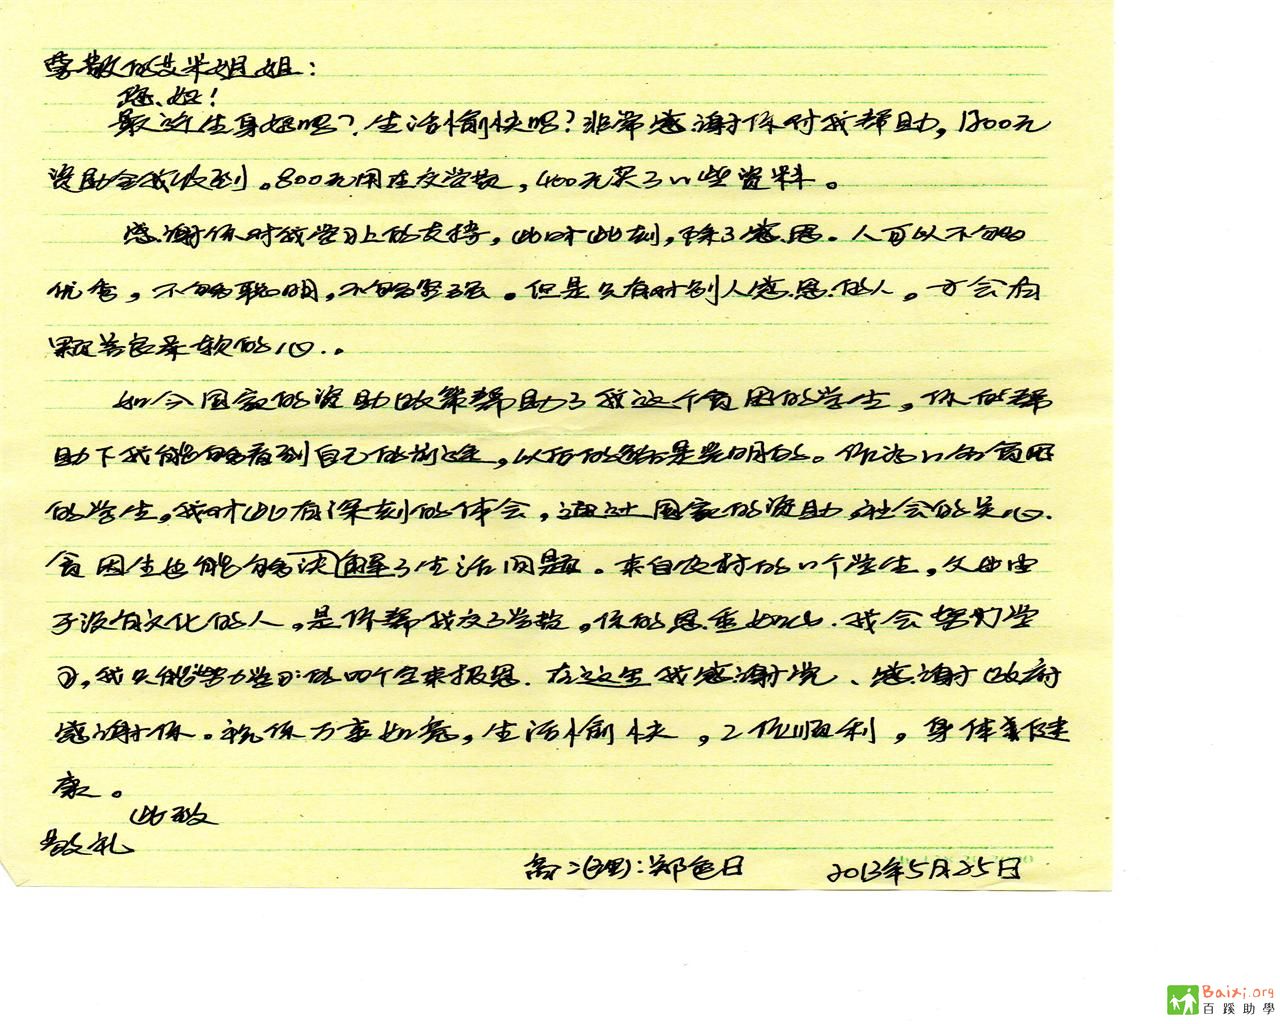 尊敬的艾米姐姐：
您好！
最近生身好吗？生活愉快吗？非常感谢你对我帮助，1200元
资助金我收到。800元用在交学费，400元买了一些资料。
感谢你对我学习上的支持，此时此刻，除了感恩。人可以不够
优秀，不够聪明，不够坚强。但是只有对别人感恩的人。才会有
颗善良柔软的心..
如今国家的资助政策帮助了我这个贫困的学生，你的帮
助下我能够看到自己的前途，以后的路是光明的。作为一名贫困
的学生，我对此有深刻的体会，通过国家的资助，社会的关心.
贫困生也能够决解了生活问题。来自农村的一个学生，父母由
于没有文化的人，是你帮我交了学费，你的恩重如山.我会努力学
习，我只能努力学习的四个字来报恩.在这里我感谢党、感谢政府
感谢你。祝你万事如意，生活愉快，工作顺利，身体健
康。
此致
敬礼
高二(理)：郑色日 2013年5月25日
Baixi.org
百蹊助學